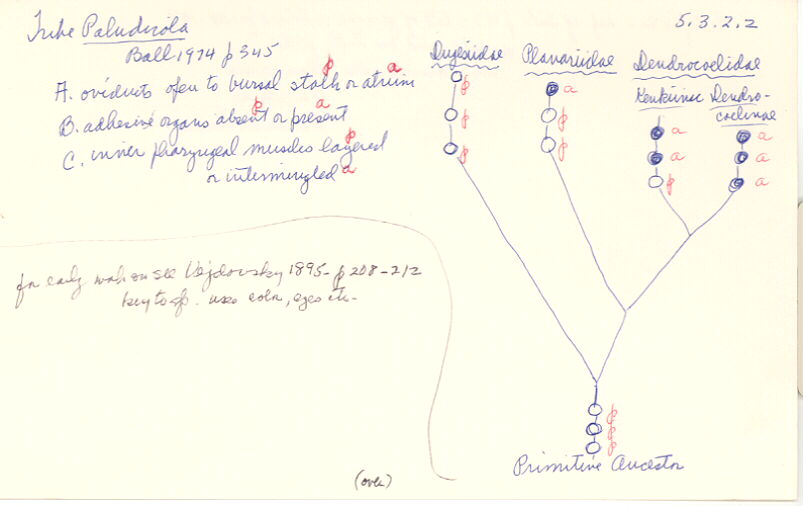 Tribe Paludicola
5.3.2.2
Ball 1974 p 345
p a
A. oviducts open to bursal stalk or atrium
p a
B. adhesive organs absent or present
p
C. inner pharyngeal muscles layered
or intermingled a
Dugesiidae Planariidae Dendrocoelidae
Kenkiinae Dendro-
coelinae
p a a a
p p a a
p p p a
for early work on see Vejdovsky 1895 - p 208-212
key to sp. uses color, eyes etc-
p
p
p
Primitive Ancestor
(over)